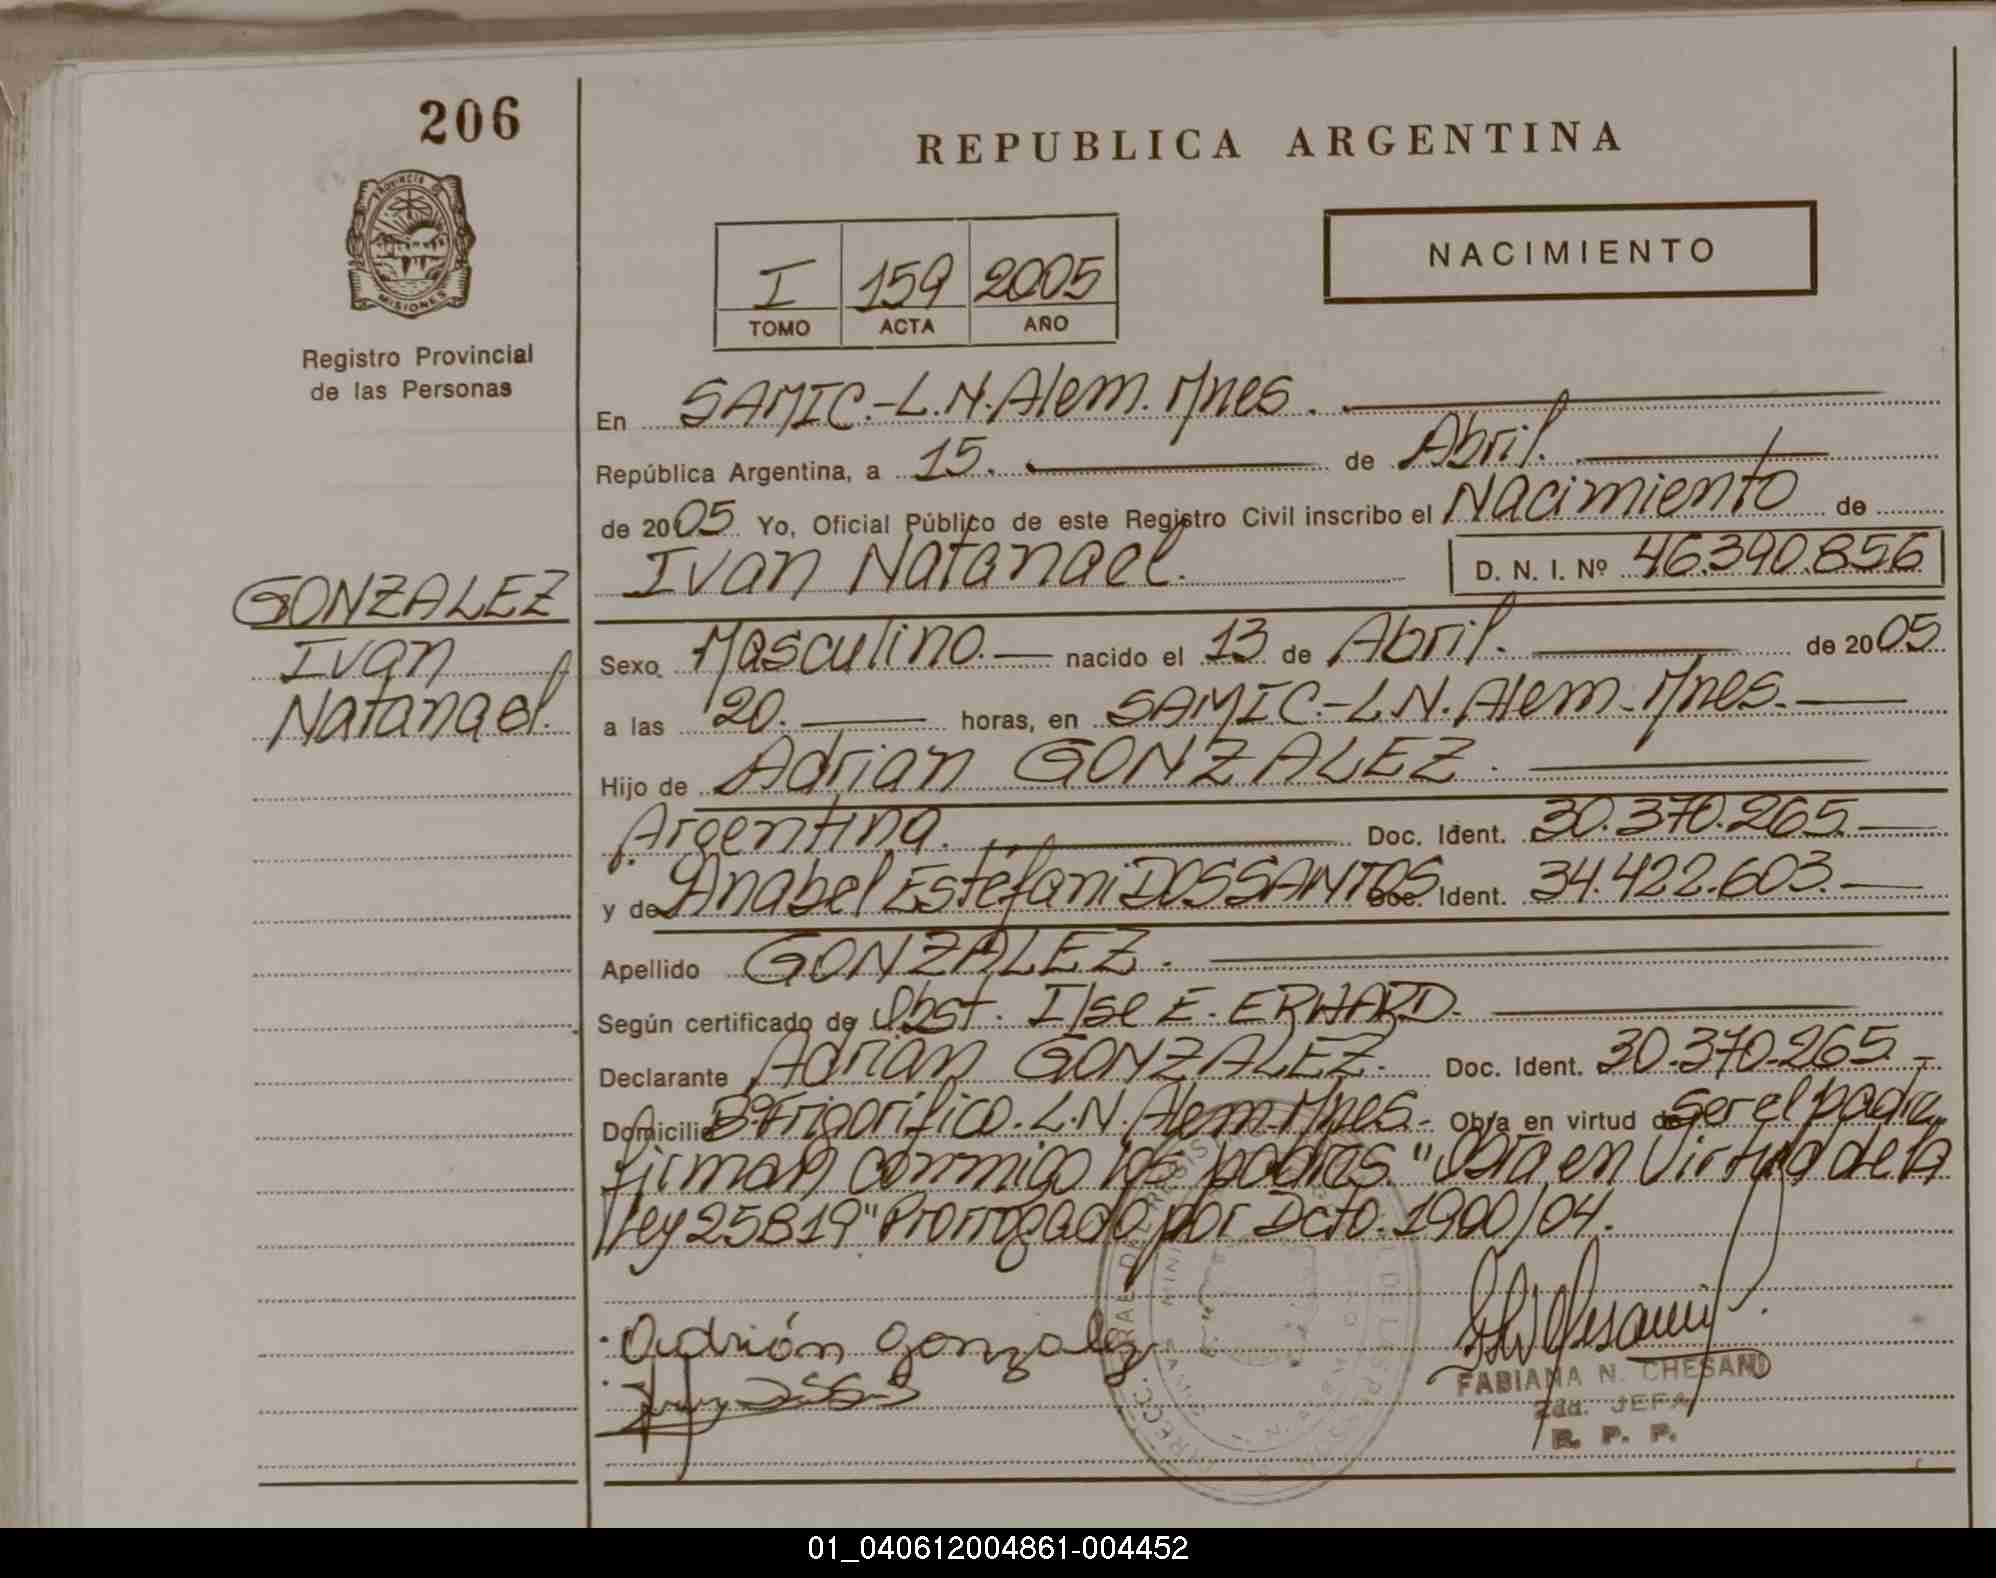 206
REPUBLICA ARGENTINA
PROVINCIA DE
MISIONES
NACIMIENTO
I 159 2005
TOMO ACTA AÑO
Registro Provincial
de las Personas
En SAMIC.-L.N.Alem.Mnes.
República Argentina, a 15. de Abril.
de 2005 Yo, Oficial Público de este Registro Civil inscribo el Nacimiento de
Ivan Natanael. D. N. I. Nº 46.390.856
GONZALEZ
Ivan
Natanael.
Sexo Masculino. nacido el 13 de Abril. de 2005
a las 20. horas, en SAMIC.-L.N.Alem.Mnes.
Hijo de Adrian GONZALEZ.
Argentina. Doc. Ident. 30.370.265.
y de Anabel Estefani DOSSANTOS Doc. Ident. 34.422.603.
Apellido GONZALEZ.
Según certificado de Obst. Ilse E. ERHARD.
Declarante Adrian GONZALEZ. Doc. Ident. 30.370.265.
Domicilio Bº Frigorifico. L.N. Alem-Mnes. Obra en virtud de ser el padre,
firman conmigo los padres. "Obra en Virtud de la
ley 25819" Prorrogado por Dcto. 1900/04.
Adrión gonzalez
FABIANA N. CHESANI
2da. JEFA
R. P. P.
01_040612004861-004452